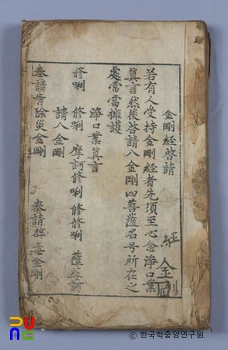 金剛經啓請
若有人受持金剛經者先須至心念淨口業
眞言然後啓請八金剛四菩薩名号所在之
處常當擁護
淨口業眞言
修唎 修唎 摩訶修唎 修修唎 薩婆訶
請八金剛
奉請靑除災金剛 奉請辟毒金剛
© 한국학중앙연구원